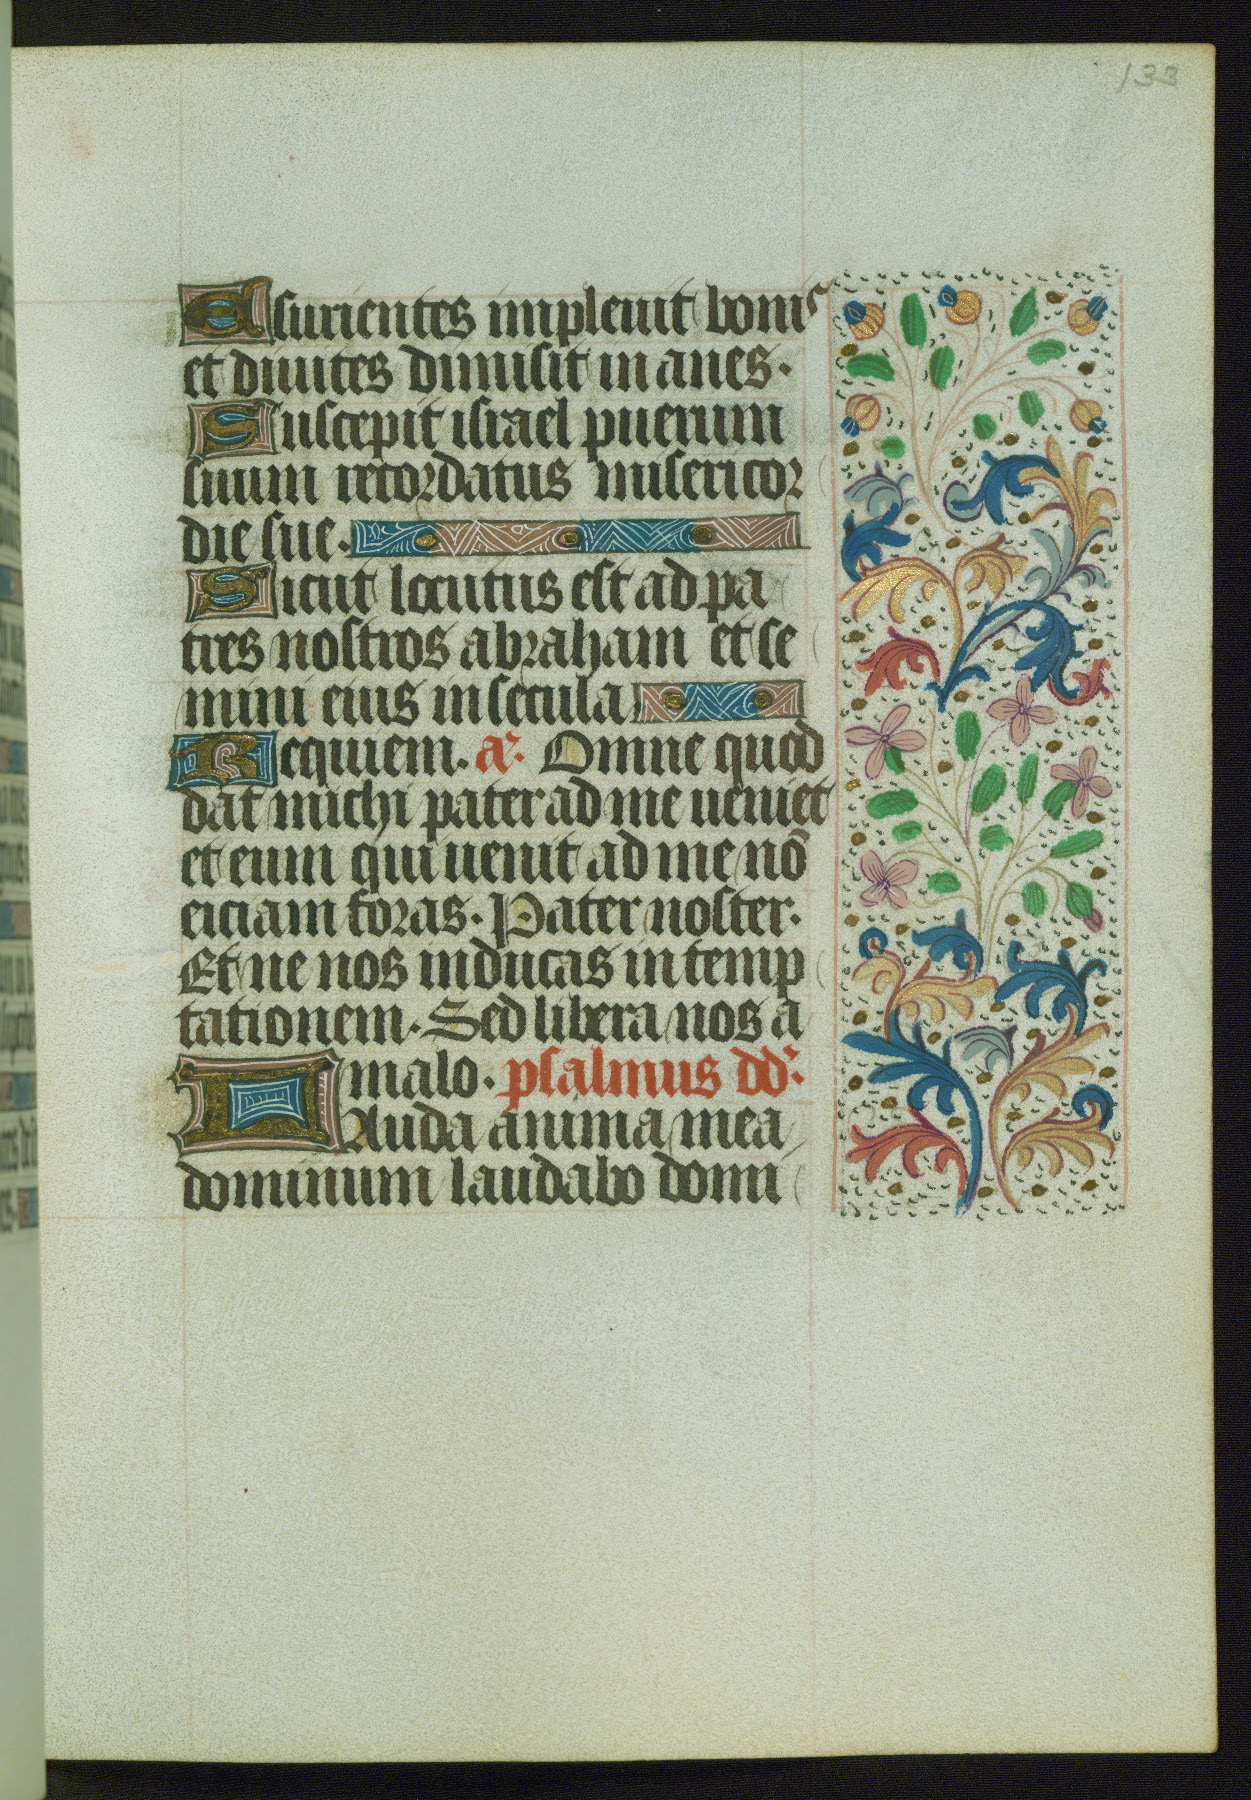 133
Esurientes impleuit bonis
et diuites dimisit in anes.
Suscepit israel puerum
suum recordatus misericor
die sue.
Sicut locutus est ad pa
tres nostros abraham et se
mini eius in secula
Requiem. a. Omne quod
dat michi pater ad me ueniet
et eum qui uenit ad me nō
eiciam foras. Pater noster.
Et ne nos inducas in temp
tationem. Sed libera nos a
malo. psalmus dd.
Lauda anima mea
dominum laudabo domi